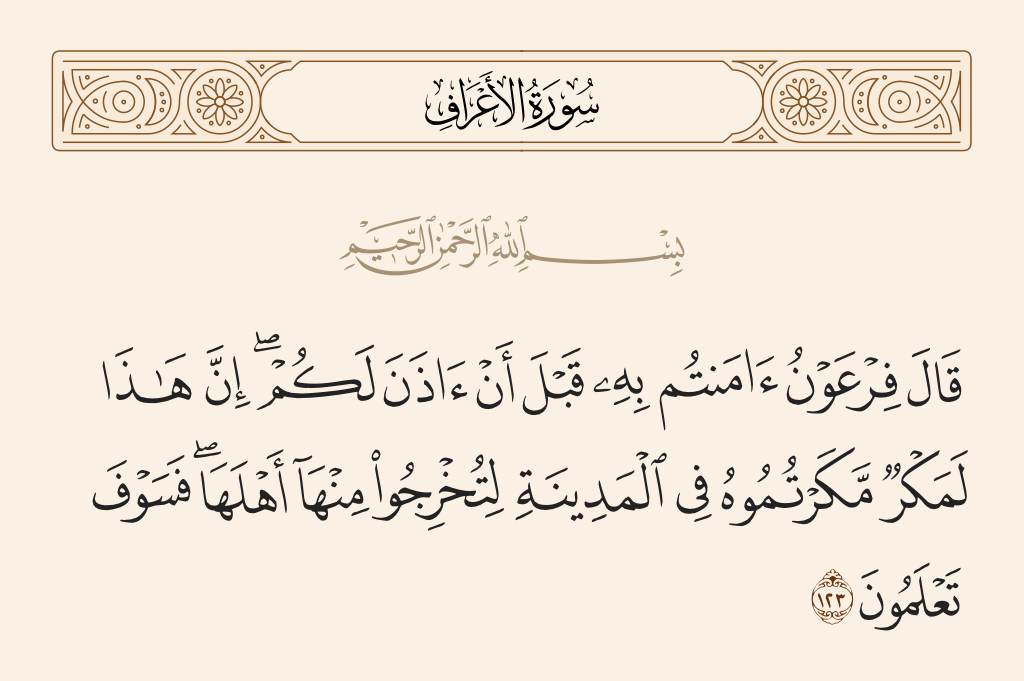 سُورَةُ الأَعْرَافِ
بِسْمِ ٱللَّهِ ٱلرَّحْمَٰنِ ٱلرَّحِيمِ
قَالَ فِرْعَوْنُ ءَامَنتُم بِهِۦ قَبْلَ أَنْ ءَاذَنَ لَكُمْۖ إِنَّ هَـٰذَا
لَمَكْرٌ مَّكَرْتُمُوهُ فِى ٱلْمَدِينَةِ لِتُخْرِجُوا۟ مِنْهَآ أَهْلَهَاۖ فَسَوْفَ
تَعْلَمُونَ ١٢٣